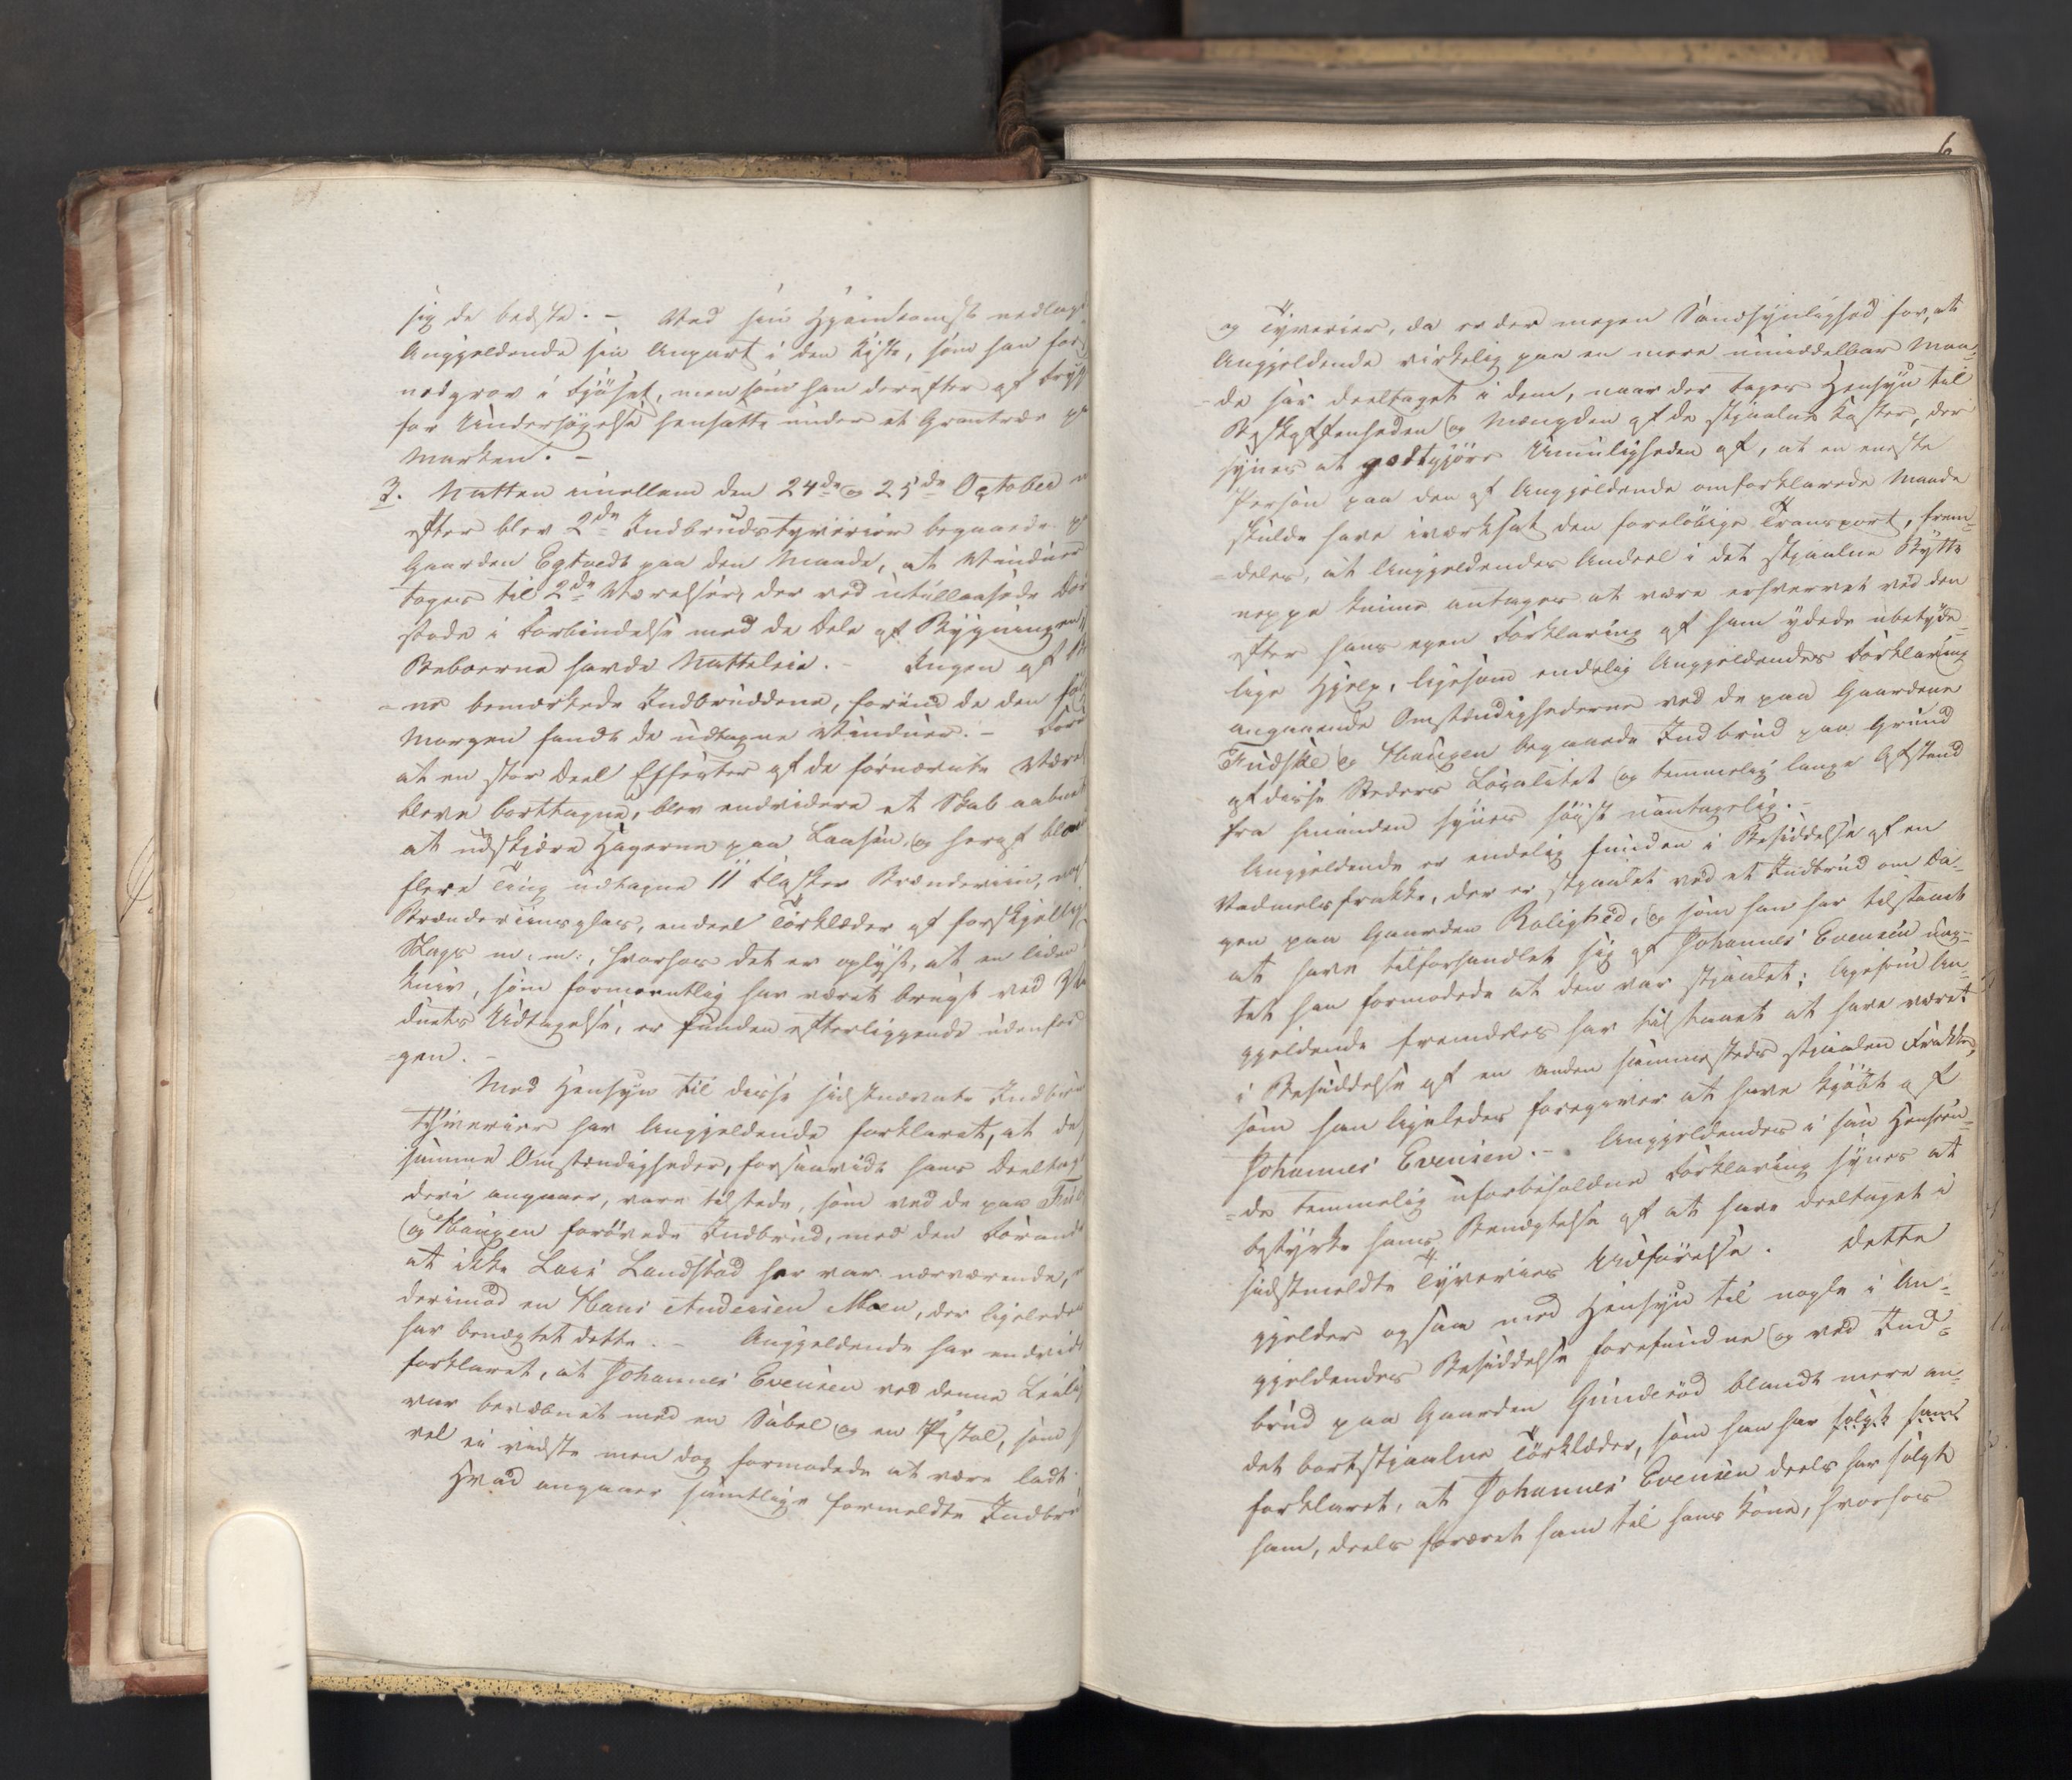 sig de bedste. – Ved sin Hjemkomst nedlag
Angjeldende sin Anpart i den Kiste, som han for
nedgrov i Fjöset, men som han derefter af Fryg
for Undersögelse hensatte under et Grantræe p
Marken. –
3. Natten imellem den 24de og 25de October
efter blev 2de Indbrudstyverier begaaede p
Gaarden Egtvedt paa den Maade, at Vinduer
toges til 2de Værelser, der ved utillaasede Dör
stode i Forbindelse med de Dele af Bygningen,
Beboerne havde Natteleie. – Ingen af
ne bemærkede Indbruddene, forend de den föl
Morgen fandt de udtagne Vinduer. – For
at en stor Deel Effecter af de fornævnte Være
bleve borttagne, blev endvidere et Skab aabnet
at udskjære Hagerne paa Laasen, og heraf blev
flere Ting udtagne 11 Flasker Brændeviin, nog
Brændeviinsglas, endeel Törklæder af forskjellig
Slags m: m:, hvorhos det er oplyst, at en liden
Kniv, som formeentlig har været brugt ved Vin
duets Udtagelse, er funden efterliggende udenfor
gen. –
Med Hensyn til disse sidstnævnte Indbru
Tyverier har Angjeldende forklaret, at de
samme Omstændigheder, forsaavidt hans Deeltag
deri angaaer, vare tilstede, som ved de paa
og Haugen forövede Indbrud, med den Forand
at ikke Lars Landstad her var nærværende,
derimod en Hans Andersen Moen, der ligelede
har benægtet dette. – Angjeldende har endvid
forklaret, at Johannes Evensen ved denne Leilig
var bevæbnet med en Sabel og en Pistol, som
vel ei vidste men dog formodede at være ladt
Hvad angaaer samtlige formeldte Indbru
6
og Tyverier, da er der megen Sandsynlighed for, at
Angjeldende virkelig paa en mere umiddelbar Maa-
-de har deeltaget i dem, naar der tages Hensyn til
Beskaffenheden og Mængden af de stjaalne Koster, der
synes at godtgjöre Umuligheden af, at en eneste
Person paa den af Angjeldende omforklarede Maade
skulde have iværksat den foreløbige Transport, frem-
-deles, at Angjeldendes Andeel i det stjaalne Bytte
neppe kunne antages at være erhvervet ved den
efter hans egen Forklaring af ham ydede ubetyde-
lige Hjelp, ligesom endelig Angjeldendes Forklaring
angaaende Omstændighederne ved de paa Gaardene
og Haugen begaaede Indbrud paa Grund
af disse Steders Localitet og temmelig lange Afstand
fra hinanden synes höist uantagelig. –
Angjeldende er endelig funden i Besiddelse af en
Vadmelsfrakke, der er stjaalet ved et Indbrud om Da-
gen paa Gaarden Rolighed, og som han har tilstaaet
at have tilforhandlet sig af Johannes Evensen uag-
tet han formodede at den var stjaalet; ligesom An-
gjeldende fremdeles har tilstaaet at have været
i Besiddelse af en anden sammesteds stjaalen Frakke,
som han ligeledes foregiver at have kjöbt af
Johannes Evensen. – Angjeldendes i saa Henseen-
-de temmelig uforbeholdne Forklaring synes at
bestyrke hans Benægtelse af at have deeltaget i
sidstmeldte Tyveries Udförelse. Dette
gjelder ogsaa med Hensyn til nogle i An-
gjeldendes Besiddelse forefundne og ved Ind-
brud paa Gaarden Gunderöd blandt mere an-
det bortstjaalne Törklæder, som han har solgt ham
forklaret, at Johannes Evensen deels har solgt
ham, deels foræret ham til hans Kone, hvorhos